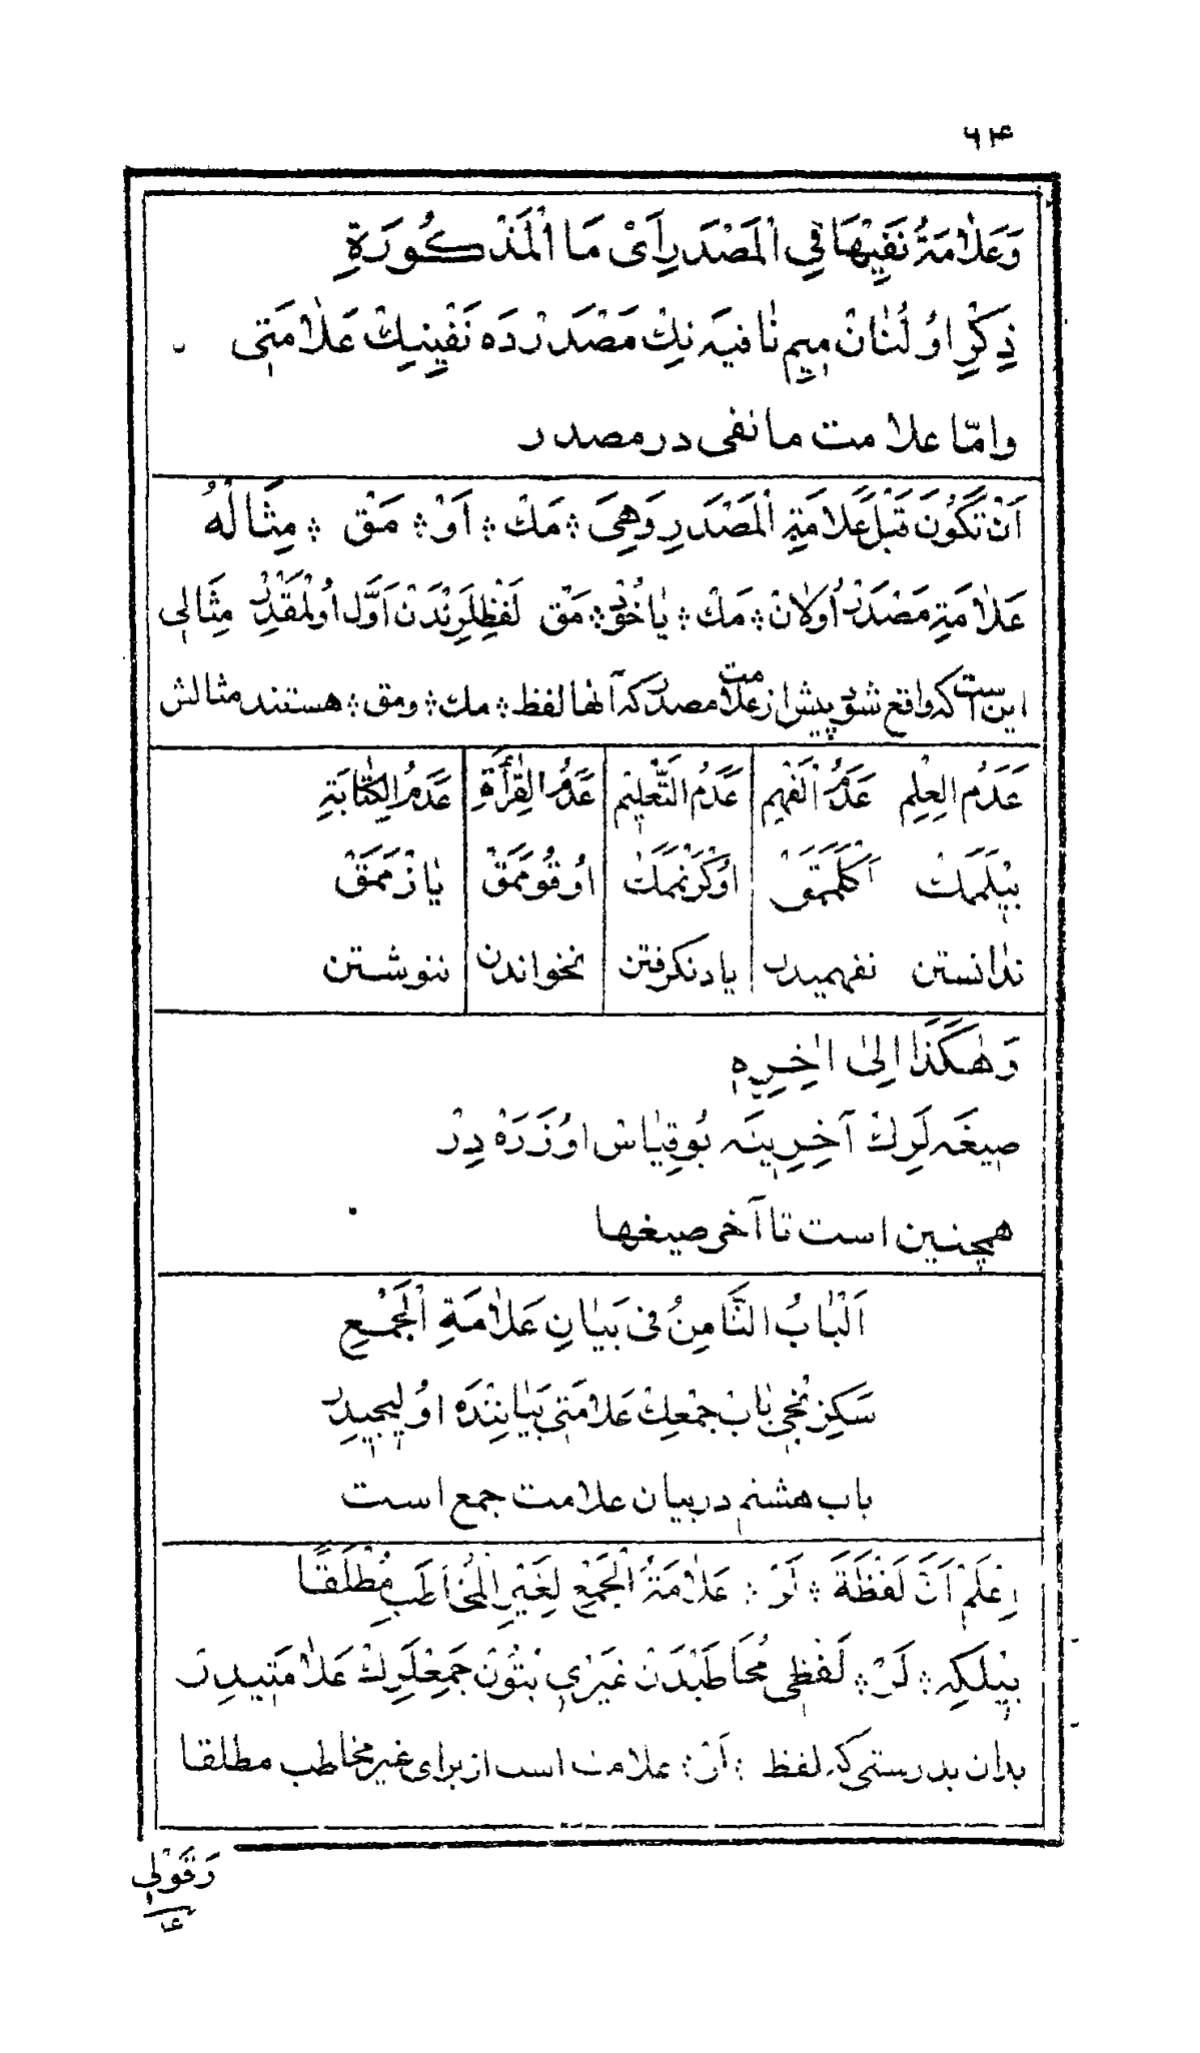 ٦٤
وَعَلٰامَةُ نَفْيِهَا فِي الْمَصْدَرِ اَىْ مَا الْمَذْكُورَةِ
ذِكْرِ اوُلُنٰانْ مٖيمِ نٰافيَه نِكْ مَصْدَرْدَه نَفْيِنِكْ عَلٰامَتٖى
وامّا علامت ما نفى در مصدر
اَنْ تَكُونَ قَبْلَ عَلَامَتِهِ الْمَصْدَرِ وَهِىَ ؞ مَكْ ؞ اَوْ ؞ مَقْ ؞ مِثَالُهُ
عَلٰامَتِ مَصْدَرْ اُولٰانْ ؞ مَكْ ؞ يٰاخُودْ ؞ مَقْ لَفْظِلَرِنْدَنْ اَوَّل اُولْمَقْدِرْ مِثَالٖى
اين است كه واقع شود پيش از علامت مصدر كه آنها لفظ ؞ مك ؞ ومق ؞ هستند مثالش
عَدَمُ الْعِلْمِ عَدَمُ الْفَهْمِ عَدَمُ التَّعْلِيْمِ عَدَمُ الْقِرٰأَةِ عَدَمُ الْكِتٰابَةِ
بٖيلَمَكْ اَكْلَمَمَقْ اوُكْرَنْمَمَكْ اوُقوُمَمَقْ يٰازْمَمَقْ
ندانستن نفهميدن ياد نكرفتن نخواندن ننوشتن
وَهٰكَذَا اِلىٰ اٰخِرِهٖ
صٖيغَه لَرِكْ آخِرِينَه بُوقِيٰاسْ اوُزَرَهْ دِرْ
همچنين است تا آخر صيغها
اَلْبٰابُ الثَّامِنُ فى بَيٰانِ عَلٰامَةِ الْجَمْعِ
سَكِزِنْجٖى بٰابْ جَمْعِكْ عَلٰامَتٖى بَيٰانِنْدَه اوُلٖيجٖيدِر
باب هشتم در بيان علامت جمع است
اِعْلَمْ اَنَّ لَفْظَةَ ؞ لَرْ ؞ عَلٰامَةُ الْجَمْعِ لِغَيْرِ الْمُخٰاطَبِ مُطْلَقًا
بٖيلْكِه ؞ لَرْ ؞ لَفْظٖى مُخٰاطَبْدَنْ غَيْرٖى بُتُونْ جَمِعْلَرِكْ عَلٰامَتٖيدِرْ
بدان بدرستى كه لفظ ؞ لَرْ ؞ علامت است از براى غير مخاطب مطلقا
وَقَوْلٖى